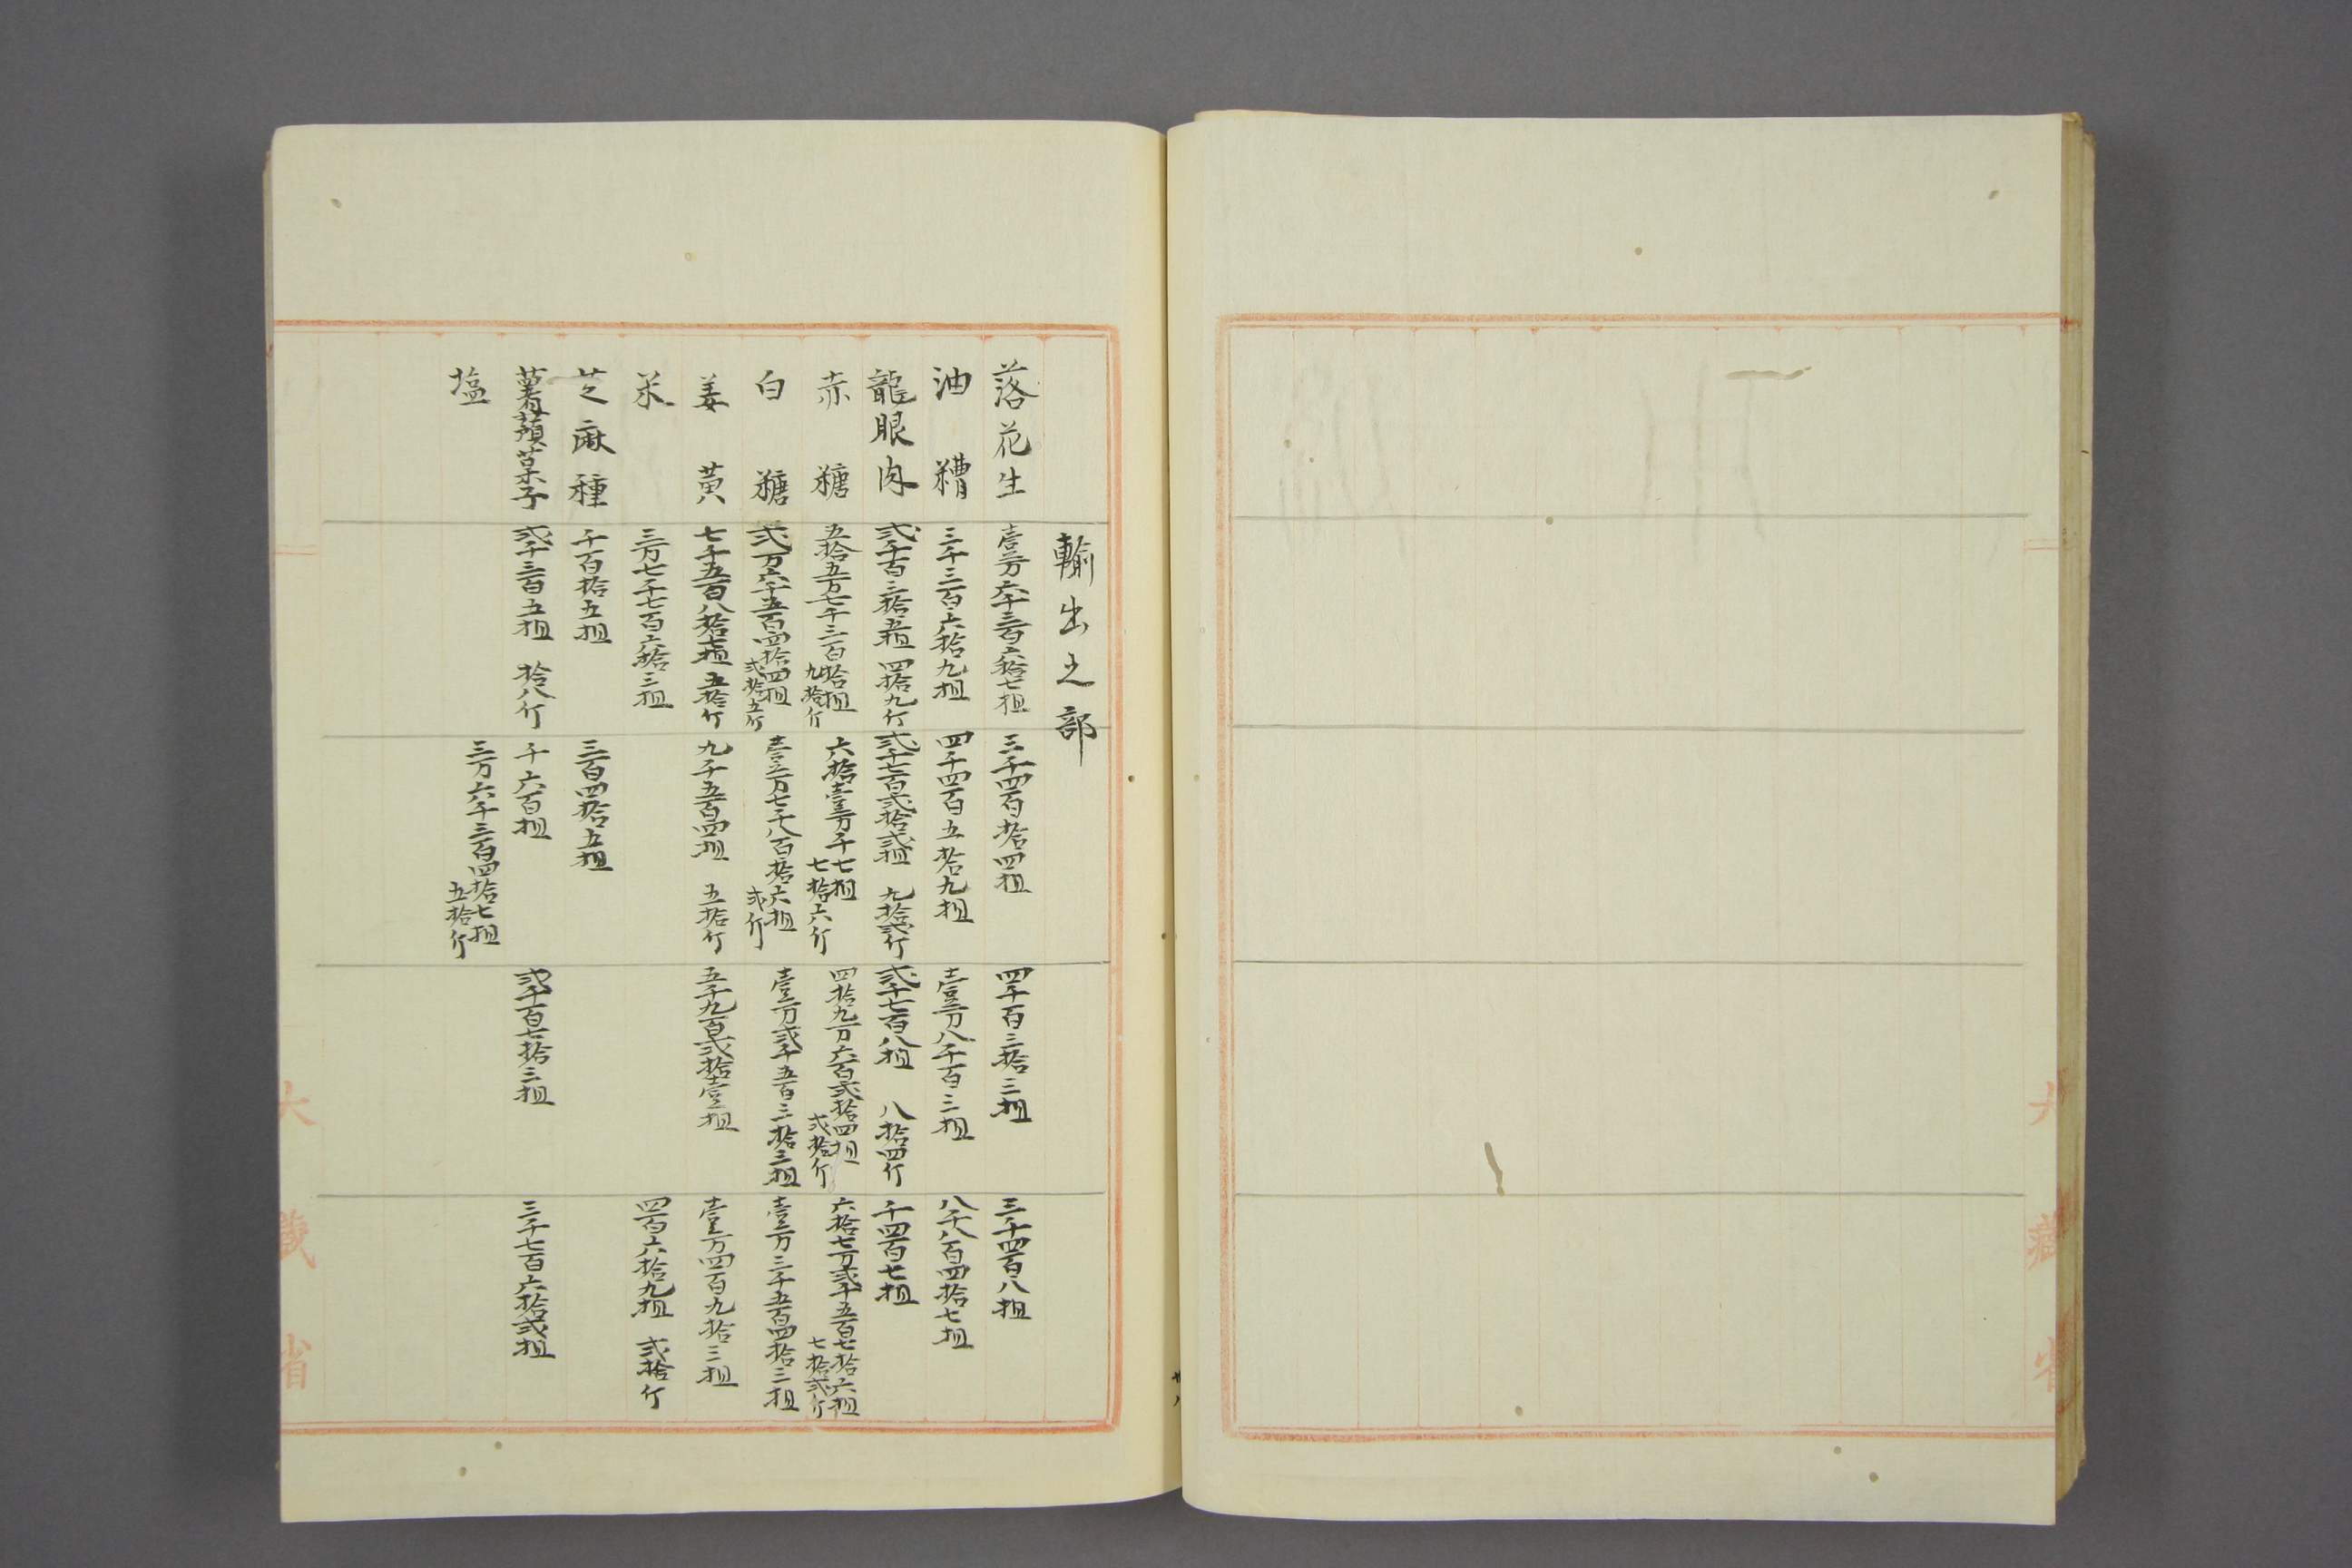 輸出之部
落花生 壹万六千三百六拾七担 三千四百拾四担 四千百三拾三担 三千四百八担
油糟 三千三百六拾九担 四千四百五拾九担 壹万八千百三担 八千八百四拾七担
龍眼肉 弐千百三拾五担 四拾九斤 弐千七百弐拾弐担 九拾弐斤 弐千七百八担 八拾四斤 千四百七担
赤糖 五拾五万七千三百拾担 九拾斤 六拾壹万千七担 七拾六斤 四拾九万六百弐拾四担 弐拾斤 六拾七万弐千五百七拾六担 七拾弐斤
白糖 弐万六千五百四拾四担 弐拾五斤 壹万七千八百拾六担 弐斤 壹万弐千五百三拾三担 壹万三千五百四拾二担
姜黄 七千五百八拾七担 五拾斤 九千五百四担 五拾斤 五千九百弐拾壹担 壹万四百九拾三担
米 三万七千七百六拾三担 四百六拾九担 弐拾斤
芝麻種 千百拾五担 三百四拾五担
薯蕷菓子 弐千三百五担 拾八斤 千六百担 弐千百七拾三担 三千七百六拾弐担
塩 三万六千三百四拾七担 五拾斤
大藏省
大藏省